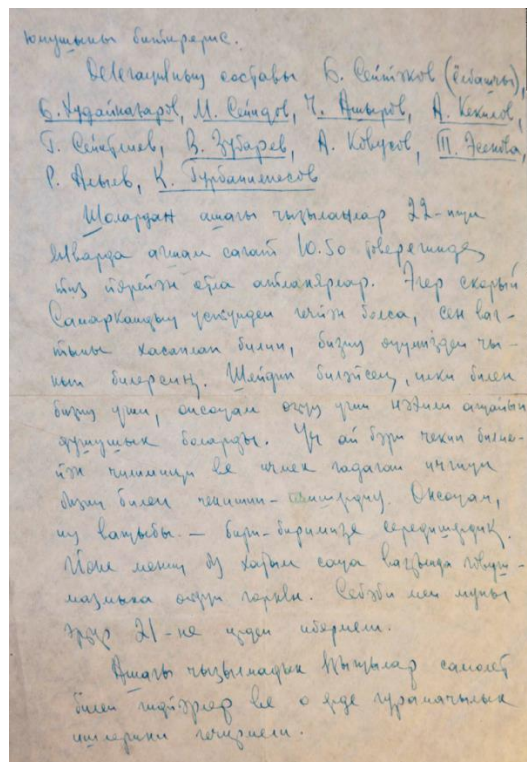 юмушыны битирерис.
Делегациямың составы Б. Сейтәков (ёлбашчы),
Б. Худайназаров, М. Сейидов, Ч. Аширов, А. Кекилов,
Г. Сейитлиев, В. Зубарев, А. Ковусов, Т. Эсенова,
Р. Алыев, К. Гурбаннепесов
Шолардан ашагы чызыланлар 22-нҗи
январда агшам сагат 10.50 товерегинде
тиз йөрейән отла атланярлар. Эгер скорый
Самаркандың үстүнден гечйән болса, сен ваг-
тыны хасаплап билип, бизиң өңүмизден чы-
кып билерсиң. Шейдип биләйсең, илки билен
бизиң үчин, онсоңам өзүң үчин нәхили аҗайып
душушык боларды. Үч ай бәри чекип билме-
йән чилимиңи ве ичмек гадаган ичгиңи
бизиң билен чекишип - ичишердиң. Онсоңам,
иң вагтыбы. — бири-биримизе середишердик.
Йөне мениң бу хатым саңа вагтында говуш-
мазмыка өзүн горкян. Себәби мен муны
әртир 21-не ирден ибермели.
Ашагы чызылмадык йылар самолёт
билен гидйәрлер ве о ерде гурамачылык
ишлерини гечирмели.